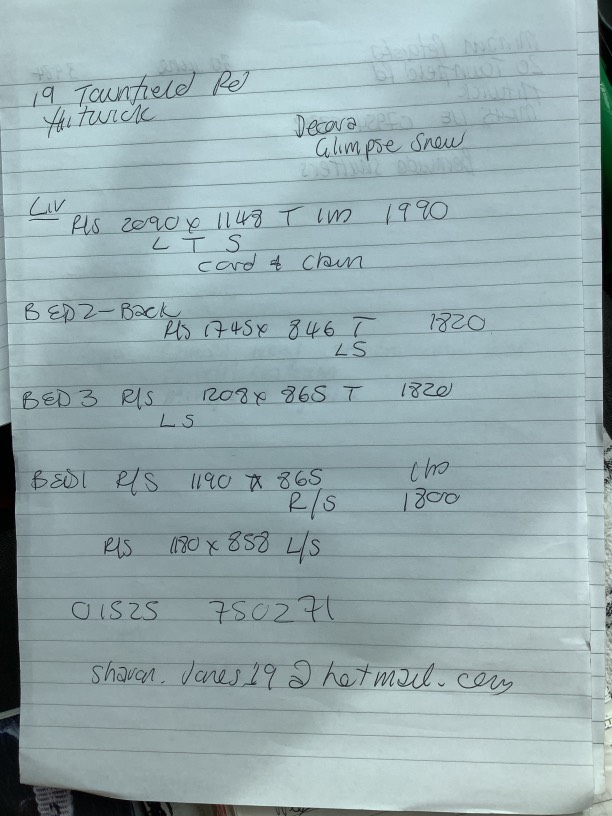 19 Townfield Rd
Decora
Glimpse Snow
Liv
R/S 2090 x 1148 T 1990
L T S
cord & chain
BED 2 - Back
R/S 1745 x 846 T 1820
LS
BED 3 R/S 1208 x 865 T 1820
LS
BED 1 R/S 1190 x 865
R/S 1800
R/S 1180 x 858 L/S
01525 750271
sharon.jones19@hotmail.com